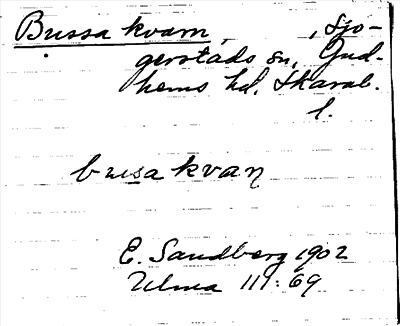 Bussa kvarn, , Sjo-
gerstads sn, Gud-
hems hd, Skarab.
l.
busa kvaɳ
E. Sandberg 1902
Ulma 111:69